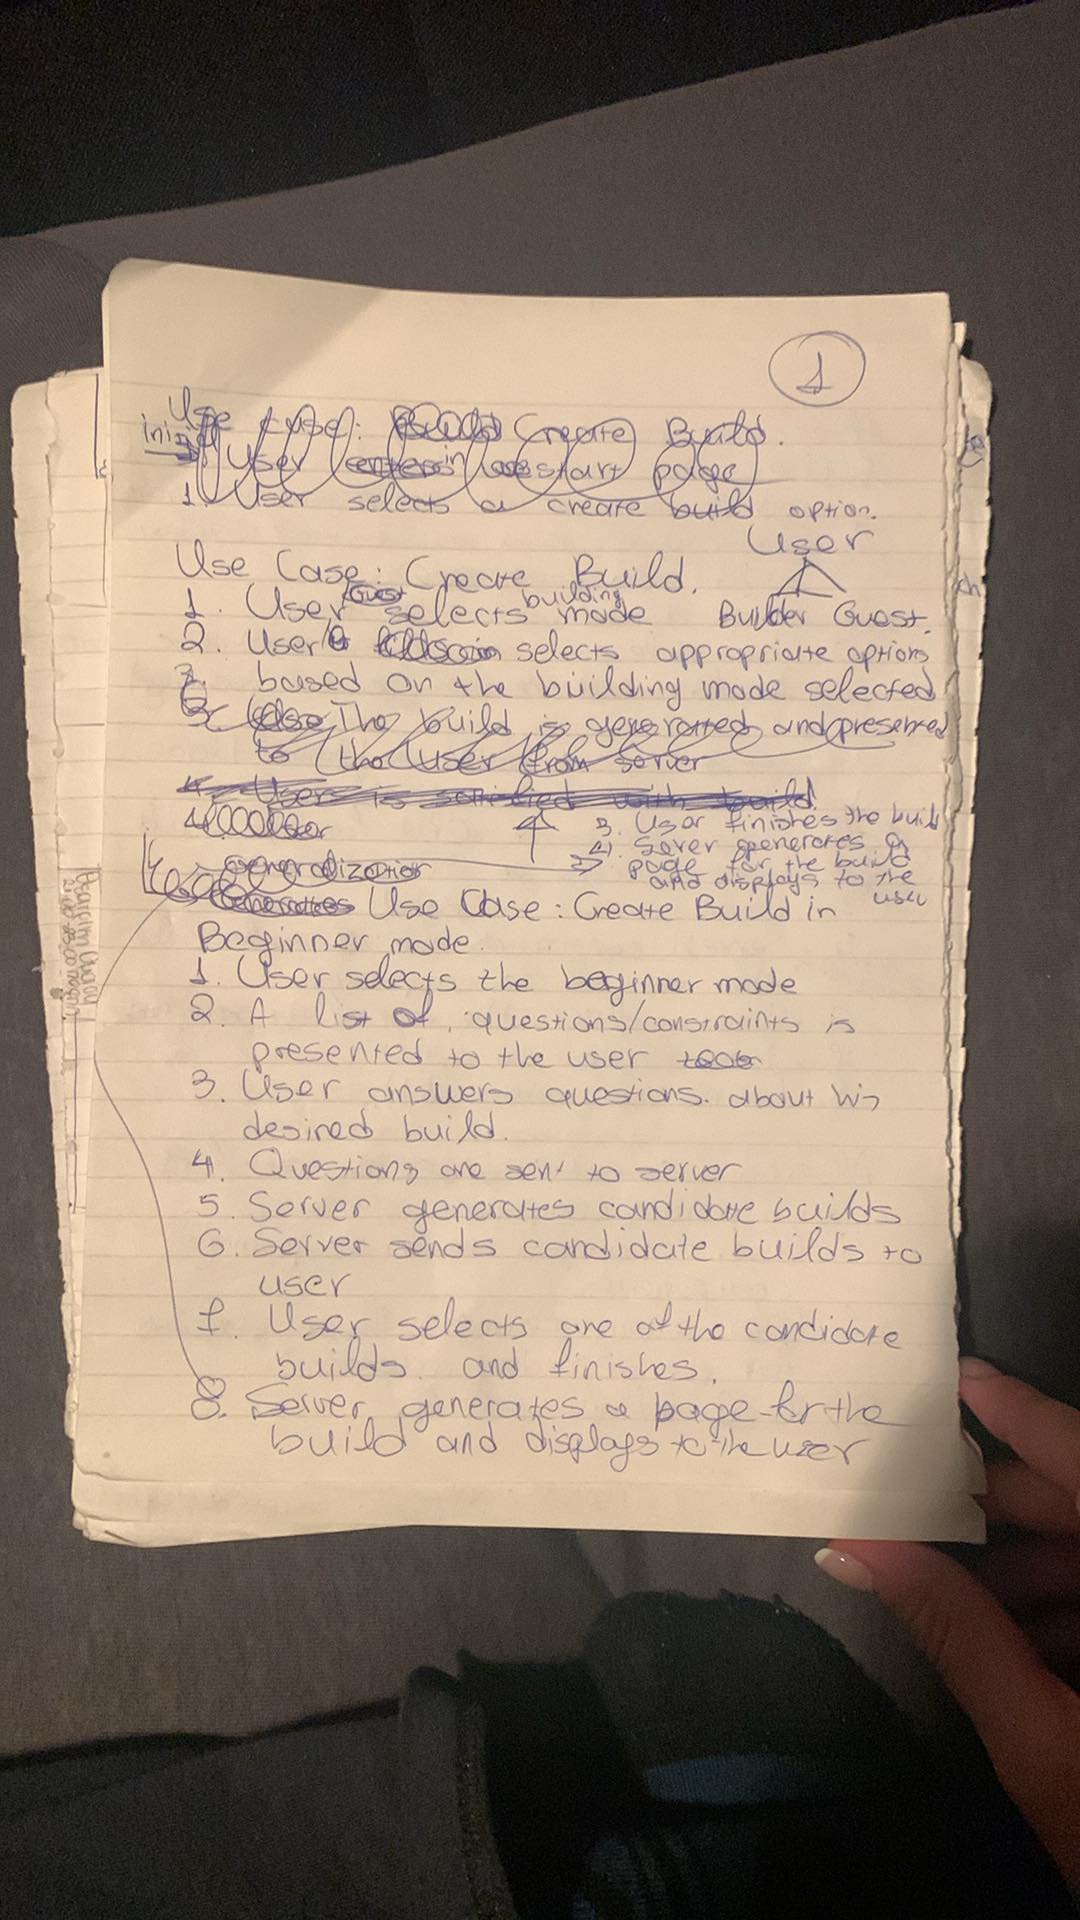 1
Use case: Create Build.
User start page
1. User selects a create build option.
User
Use Case: Create Build.
Builder Guest.
1. User/Guest selects building mode
2. User selects appropriate options
based on the building mode selected
3. The build is generated and presented
to the user from server
4. User is satisfied with build
3. User finishes the build
4) Server generates a
page for the build
and displays to the
user
generalization
Use Case: Create Build in
Beginner mode.
1. User selects the beginner mode
2. A list of questions/constraints is
presented to the user
3. User answers questions. about his
desired build.
4. Questions are sent to server
5. Server generates candidate builds
6. Server sends candidate builds to
user
7. User selects one of the candidate
builds and finishes.
8. Server generates a page for the
build and displays to the user